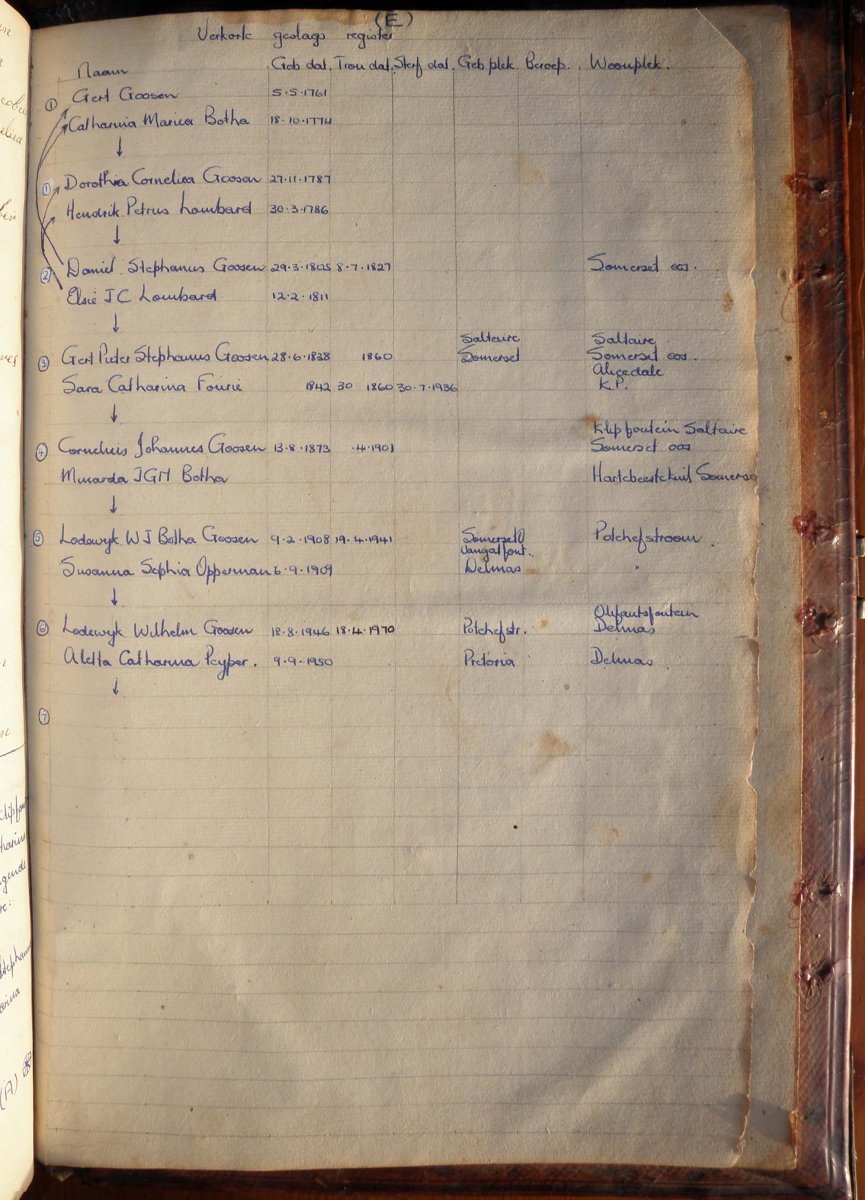 (E)
Verkorte geslags register
Naam Geb dat. Trou dat. Sterf dat. Geb plek. Beroep. Woonplek.
① Gert Goosen 5.5.1761
Catharina Maria Botha 18.10.1774
↓
① Dorothia Cornelia Goosen 27.11.1787
Hendrik Petrus Lombard 30.3.1786
↓
② Daniel Stephanus Goosen 29.3.1805 8.7.1827 Somerset oos.
Elsie J C Lombard 12.2.1811
↓
Saltaire Saltaire
③ Gert Pieter Stephanus Goosen 28.6.1838 1860 Somerset Somerset oos.
Alicedale
Sara Catharina Fourie 1842 30 1860 30.7.1936 K.P.
↓
Klipfontein Saltaire
④ Cornelius Johannes Goosen 13.8.1873 .4.1901 Somerset oos
Minarda JGM Botha Hartebeestekuil Somerse
↓
⑤ Lodewyk W J Botha Goosen 9.2.1908 19.4.1941 Somerset O Potchefstroom.
Susanna Sophia Opperman 6.9.1909 Delmas "
↓
Olifantsfontein
⑥ Lodewyk Wilhelm Goosen 18.8.1946 18.4.1970 Potchefstr. Delmas
Aletta Catharina Peyper. 9.9.1950 Pretoria Delmas.
↓
⑦
(A)